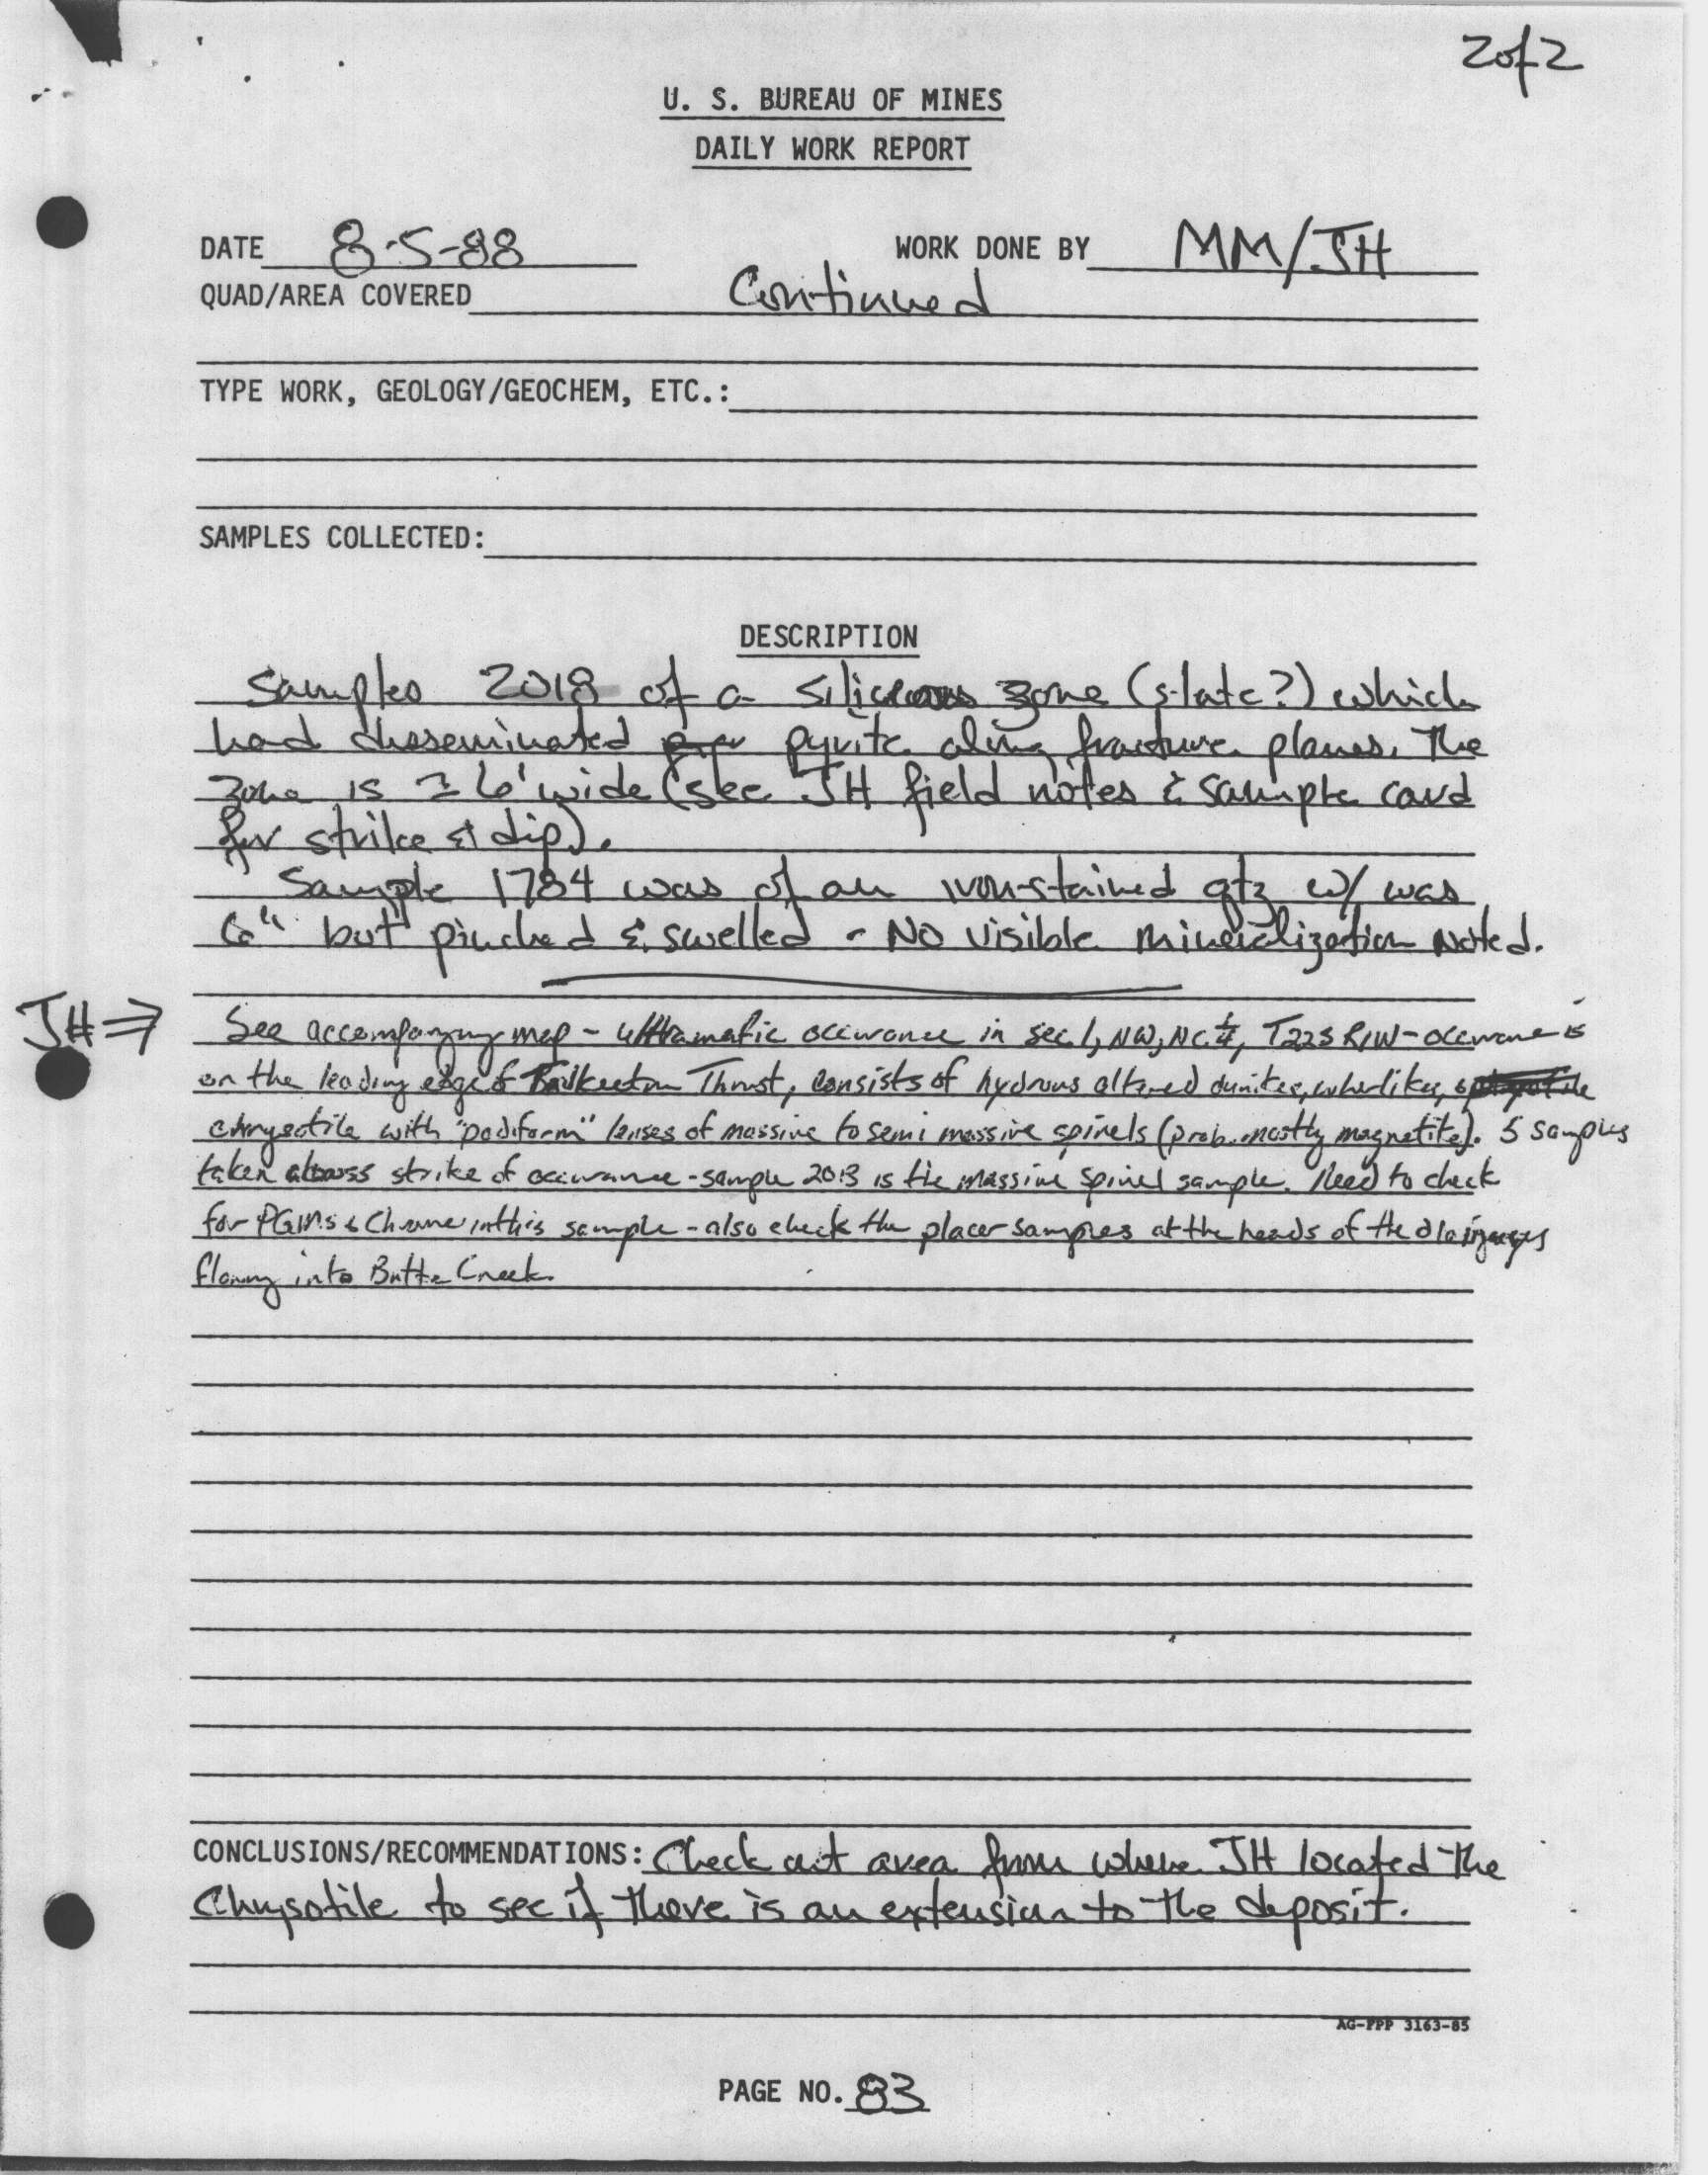 2 of 2
U. S. BUREAU OF MINES
DAILY WORK REPORT
DATE 8-5-88 WORK DONE BY MM/JH
QUAD/AREA COVERED Continued
TYPE WORK, GEOLOGY/GEOCHEM, ETC.:
SAMPLES COLLECTED:
DESCRIPTION
Samples 2018 of a siliceous zone (slate?) which
had disseminated pyrite along fracture planes. The
zone is ≈ 6' wide (see JH field notes & sample card
for strike & dip).
Sample 1784 was of an iron-stained qtz w/ was
6" but pinched & swelled - No visible mineralization noted.
JH ⇒ See accompanying map - ultramafic occurance in sec 1, NW, T22S R1W - occurance is
on the leading edge of Thrust, consists of hydrous altered dunites, wherlites,
chrysotile with "podiform" lenses of massive to semi massive spinels (prob. mostly magnetite). 5 samples
taken across strike of occurance - sample 2013 is the massive spinel sample. Need to check
for PGMs & Chrome in this sample - also check the placer samples at the heads of the drainages
flowing into Butte Creek.
CONCLUSIONS/RECOMMENDATIONS: Check out area from where JH located the
Chrysotile to see if there is an extension to the deposit.
AG-FPP 3163-85
PAGE NO. 83